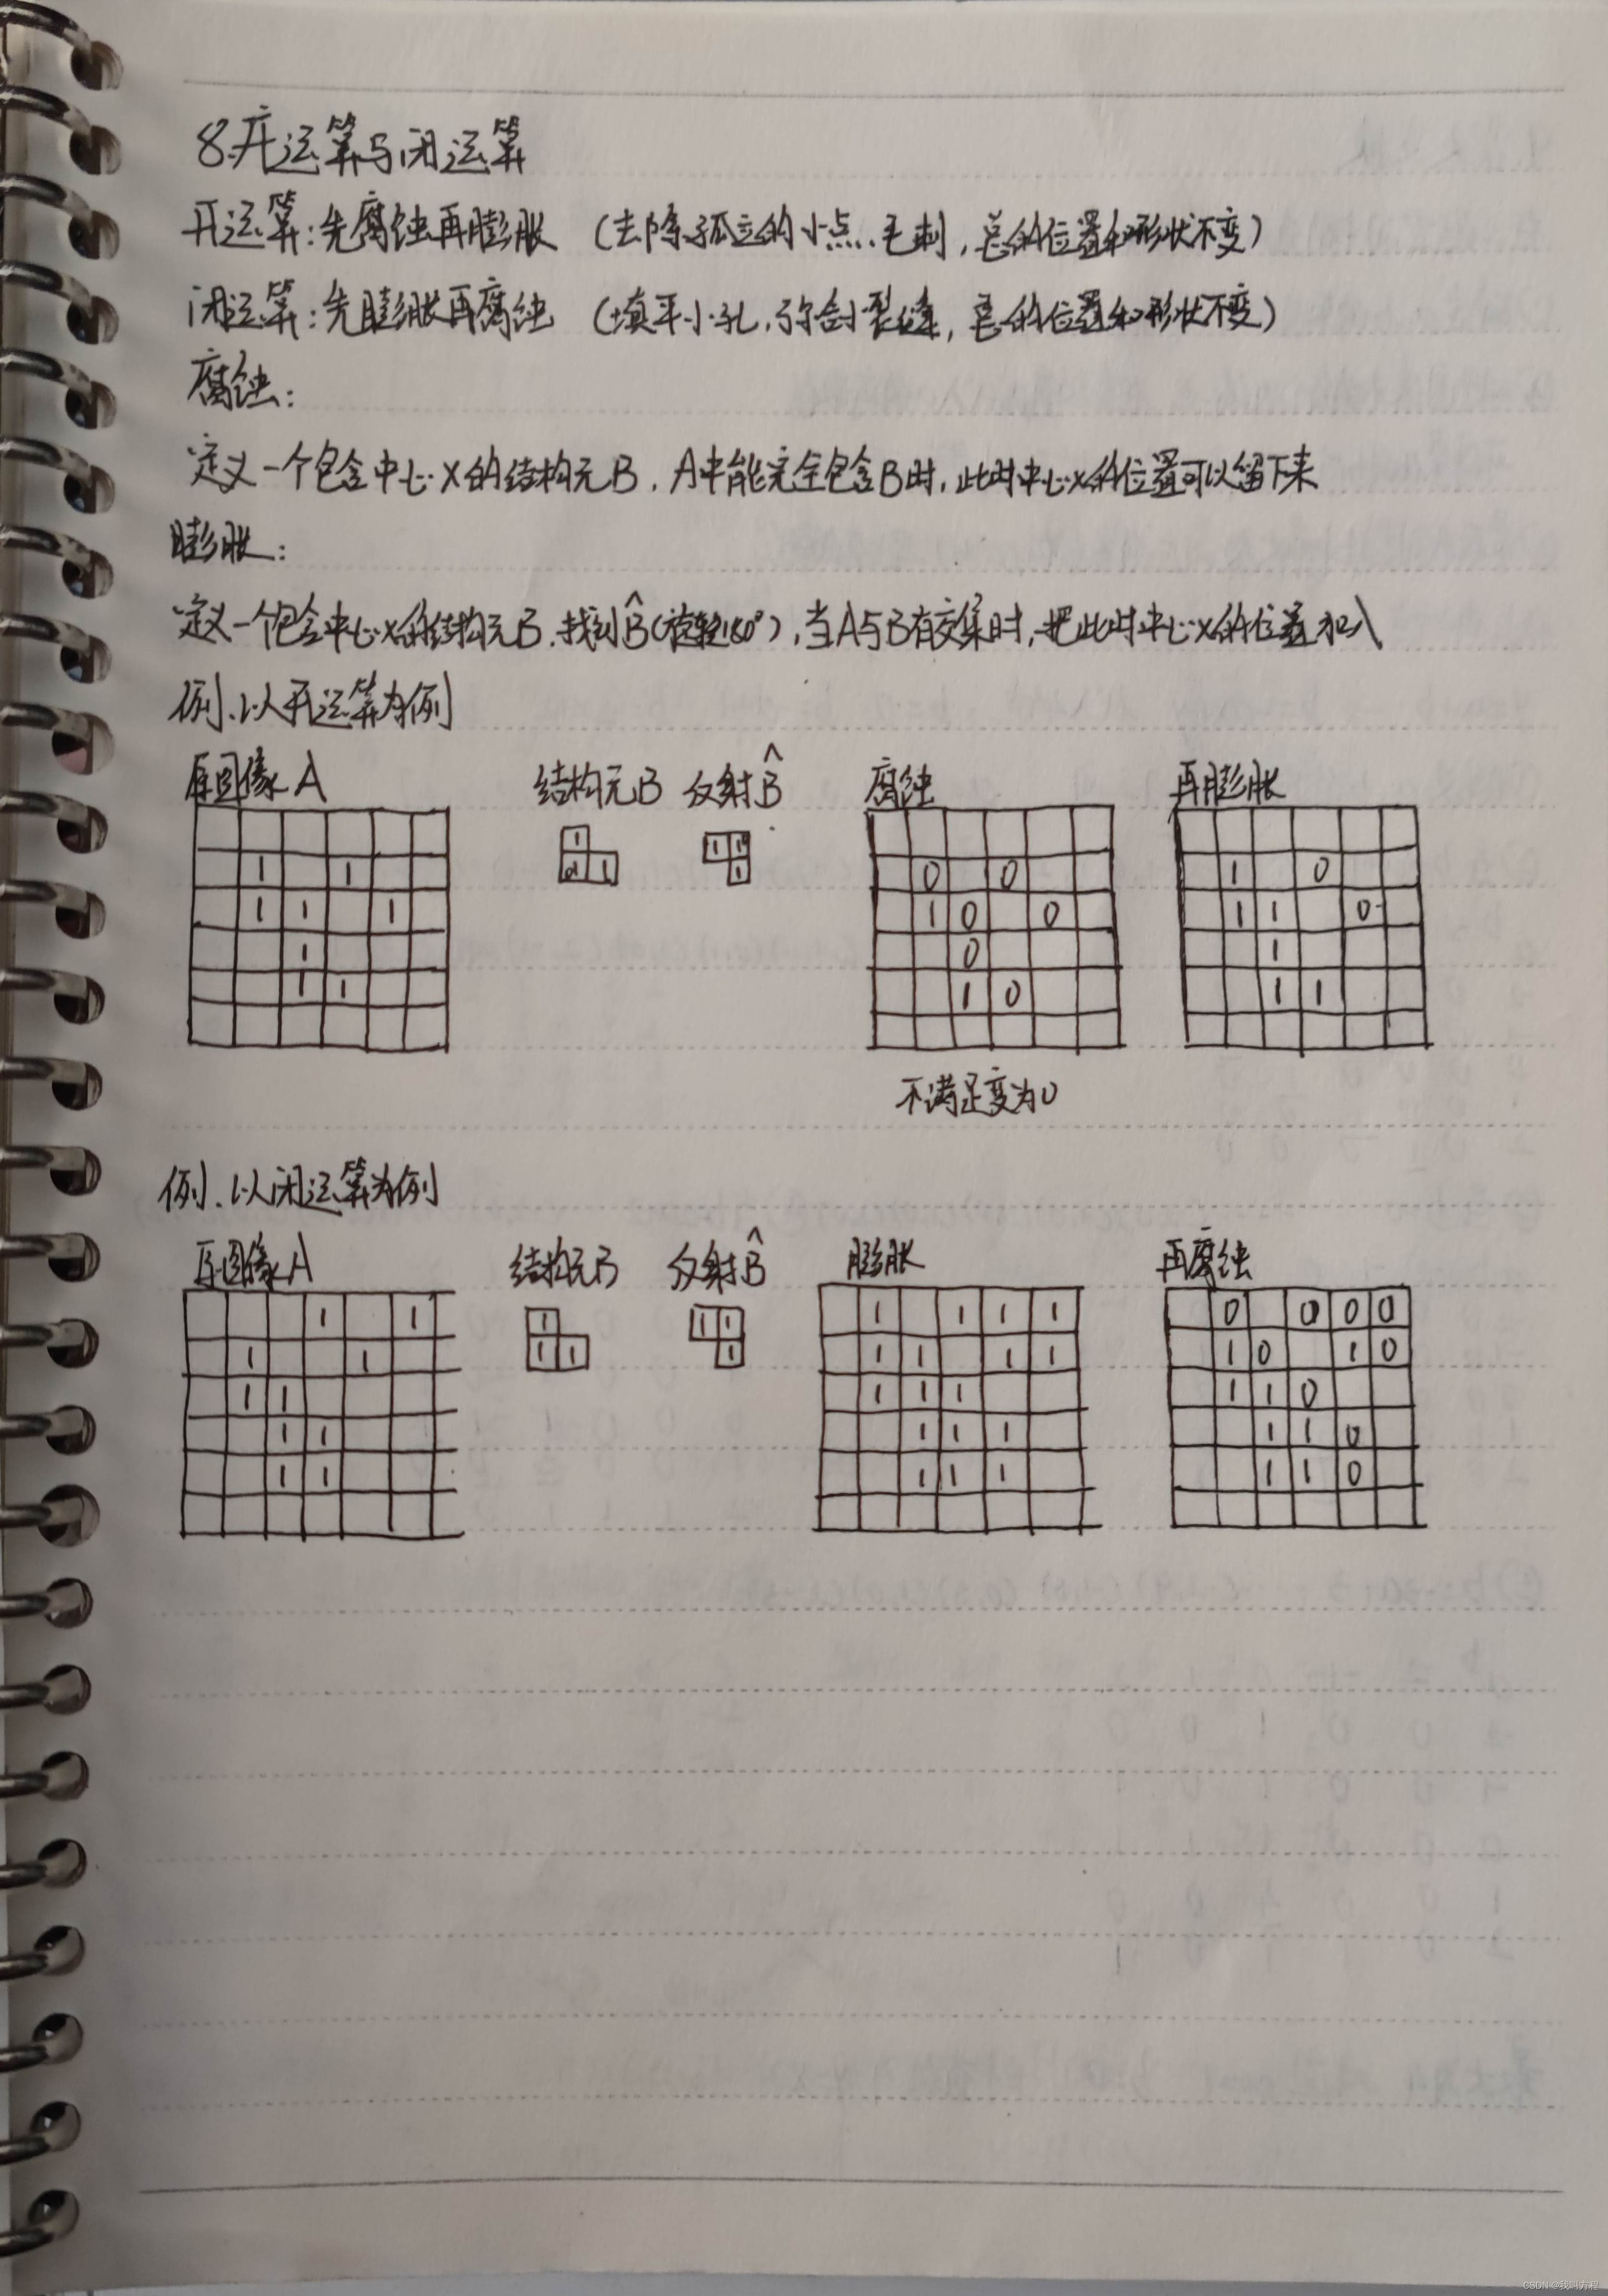 8.开运算与闭运算
开运算:先腐蚀再膨胀 (去除孤立的小点、毛刺,总的位置和形状不变)
闭运算:先膨胀再腐蚀 (填平小孔,弥合小裂缝,总的位置和形状不变)
腐蚀:
定义一个包含中心x的结构元B,A中能完全包含B时,此时中心x的位置可以留下来
膨胀:
定义一个包含中心x的结构元B,找到B̂(旋转180°),当A与B有交集时,把此时中心x的位置加入
例、以开运算为例
原图像A 结构元B 反射B̂ 腐蚀 再膨胀
1 1 1 1 1 0 0 1 0
1 1 1 1 1 1 1 0 0 1 1 0
1 0 1
1 1 1 0 1 1
不满足变为0
例、以闭运算为例
原图像A 结构元B 反射B̂ 膨胀 再腐蚀
1 1 1 1 1 1 1 1 1 0 0 0 0
1 1 1 1 1 1 1 1 1 1 0 1 0
1 1 1 1 1 1 1 0
1 1 1 1 1 1 1 0
1 1 1 1 1 1 1 0
CSDN @我叫方程